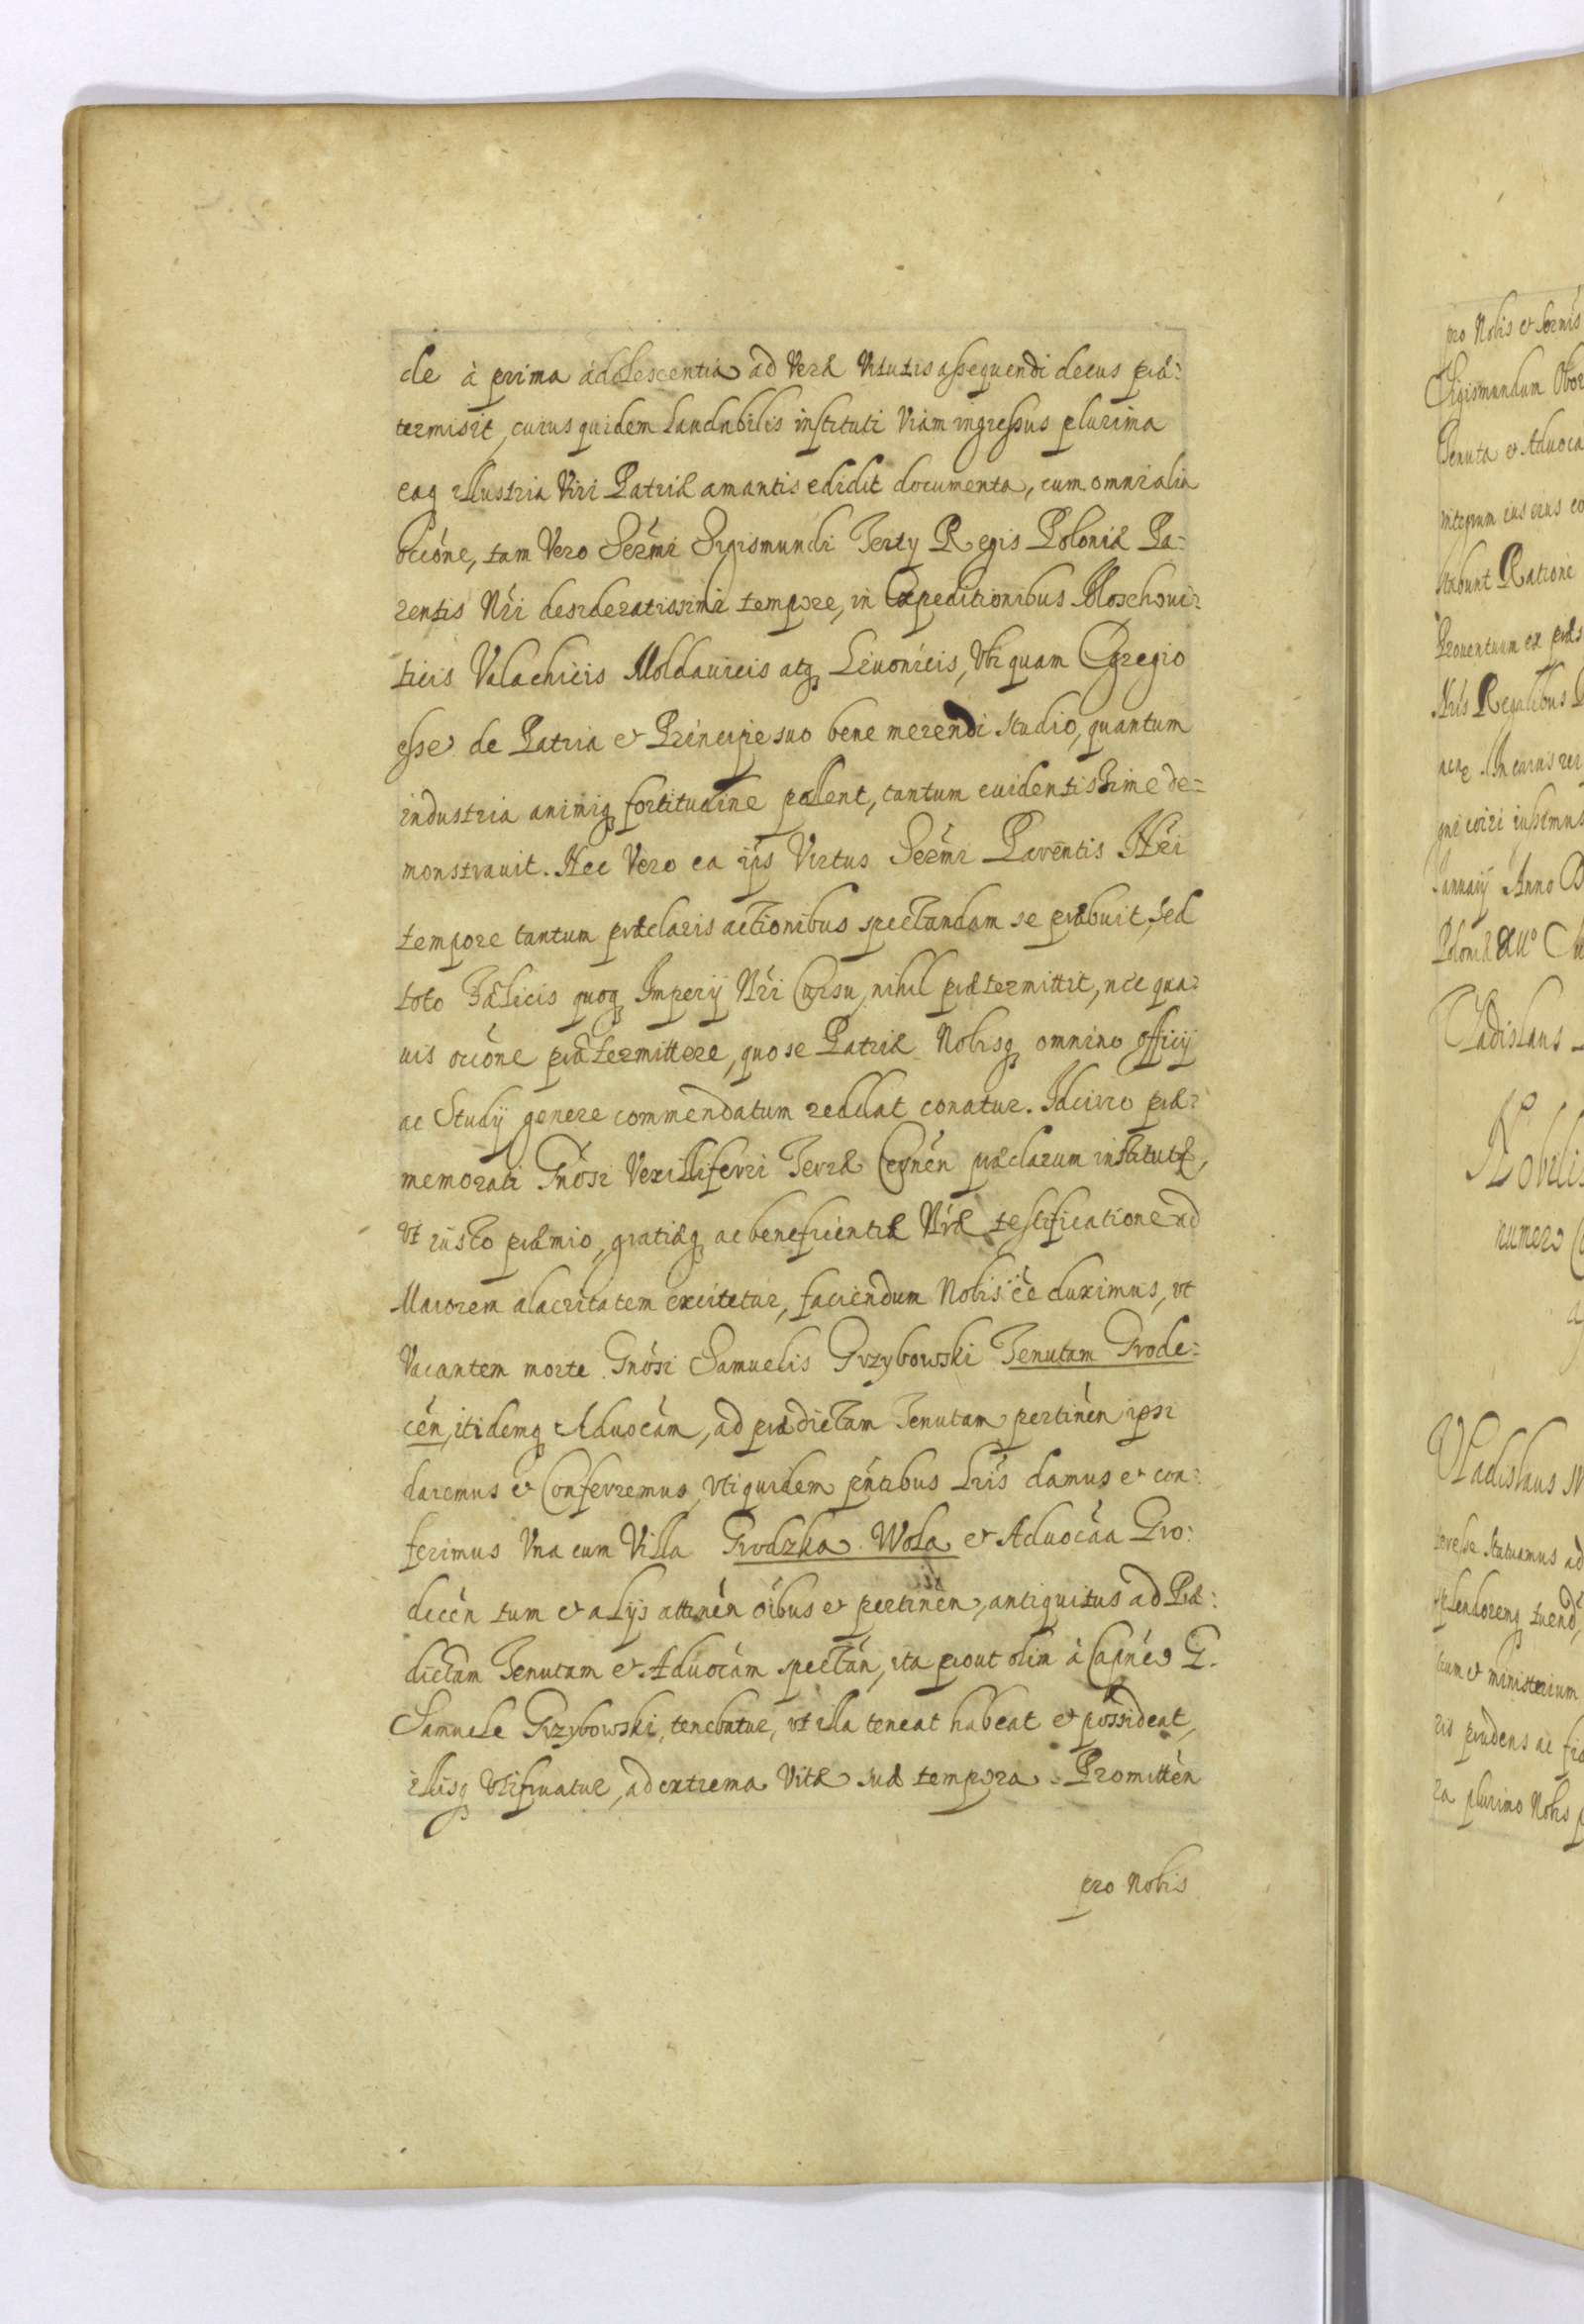 de à prima ádolescentia ad Veræ Vitutis assequendi decus præ:
termisit, cuius quidem Laudabilis instituti Viam ingressus plurima
eaq illustria Viri Patriæ amantis edidit documenta, cum omni alia
occóne, tam Vero Sermi Sigismundi Tertij Regis Poloniæ Pa:
rentis Nri desideratissimi tempore, in Expeditionibus Moschoui:
ticis Valachicis Moldauicis atq Liuonicis, Vbi quam Egregio
esse de Patria et Principe suo bene merendi studio, quantum
industria animiq fortitudine polent, tantum euidentissime de=
monstrauit. Nec Vero ea ips Virtus Sermi Parentis Nri
tempore tantum præclaris actionibus spectandam se præbuit, sed
toto Fælicis quoq Imperij Nri Cursu, nihil prætermittit, nec qua:
uis occóne prætermittere, quo se Patriæ Nobisq omnino officij
ac Studij genere commendatum reddat conatur. Idcirco præ:
memorati Gnosi Vexilliferri Terræ Cernén præclarum institutũ,
Vt iusto præmio, gratiæq ac beneficientiæ Nræ testificatione ad
Maiorem alacritatem excitetur, faciendum Nobis ee duximus, vt
Vacantem morte Gnosi Samuelis Grzybowski Tenutam Grode:
cén, itidemq Aduocám, ad prædictam Tenutam pertinén ipsi
daremus et Conferremus, Vti quidem pntibus Lris damus et con:
ferimus Vna cum Villa Grodzka Wola et Aduocáa Gro:
decén tum et alijs attinén óibus et pertinén, antiquitus ad Præ:
dictam Tenutam et Aduocám spectán, ita prout olim à G.
Samuele Grzybowski, tenebatur, vt illa teneat habeat et possideat,
illisq Vtifruatur, ad extrema Vitæ suæ tempora. Promittén
pro Nobis
pro Nobis et Sermis
Sigismundum
Tenuta et Aduoca
integrum ius eius
Ratione
Prouentuum ex præs
Nris Regalibus
In cuius rei
gni iussimus
Januarij Anno D
Poloniæ
Vladislaus
Nobilis
numero
Vladislaus
Statuamus ad
splendoremq tuend
cum et ministerium
ris prudens ac
ra plurimo Nobis